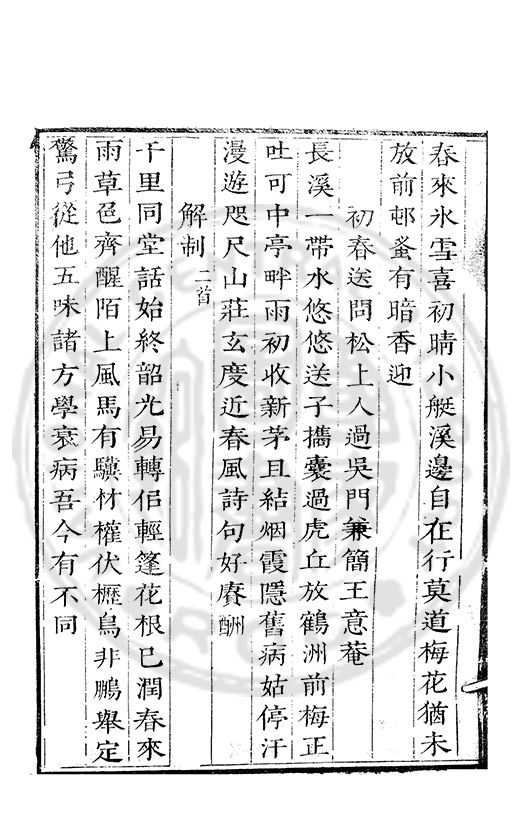 春來氷雪喜初晴小艇溪邊自在行莫道梅花猶未
放前邨蚤有暗香迎
初春送問松上人過吳門兼簡王意菴
長溪一帶水悠悠送子攜囊過虎丘放鶴洲前梅正
吐可中亭畔雨初收新茅且結烟霞隱舊病姑停汗
漫遊咫尺山莊玄度近春風詩句好賡酬
解制二首
千里同堂話始終韶光易轉佀輕篷花根巳潤春來
雨草邑齊醒陌上風馬有驥材權伏櫪鳥非鵬舉定
驚弓從他五味諸方學衰病吾今有不同